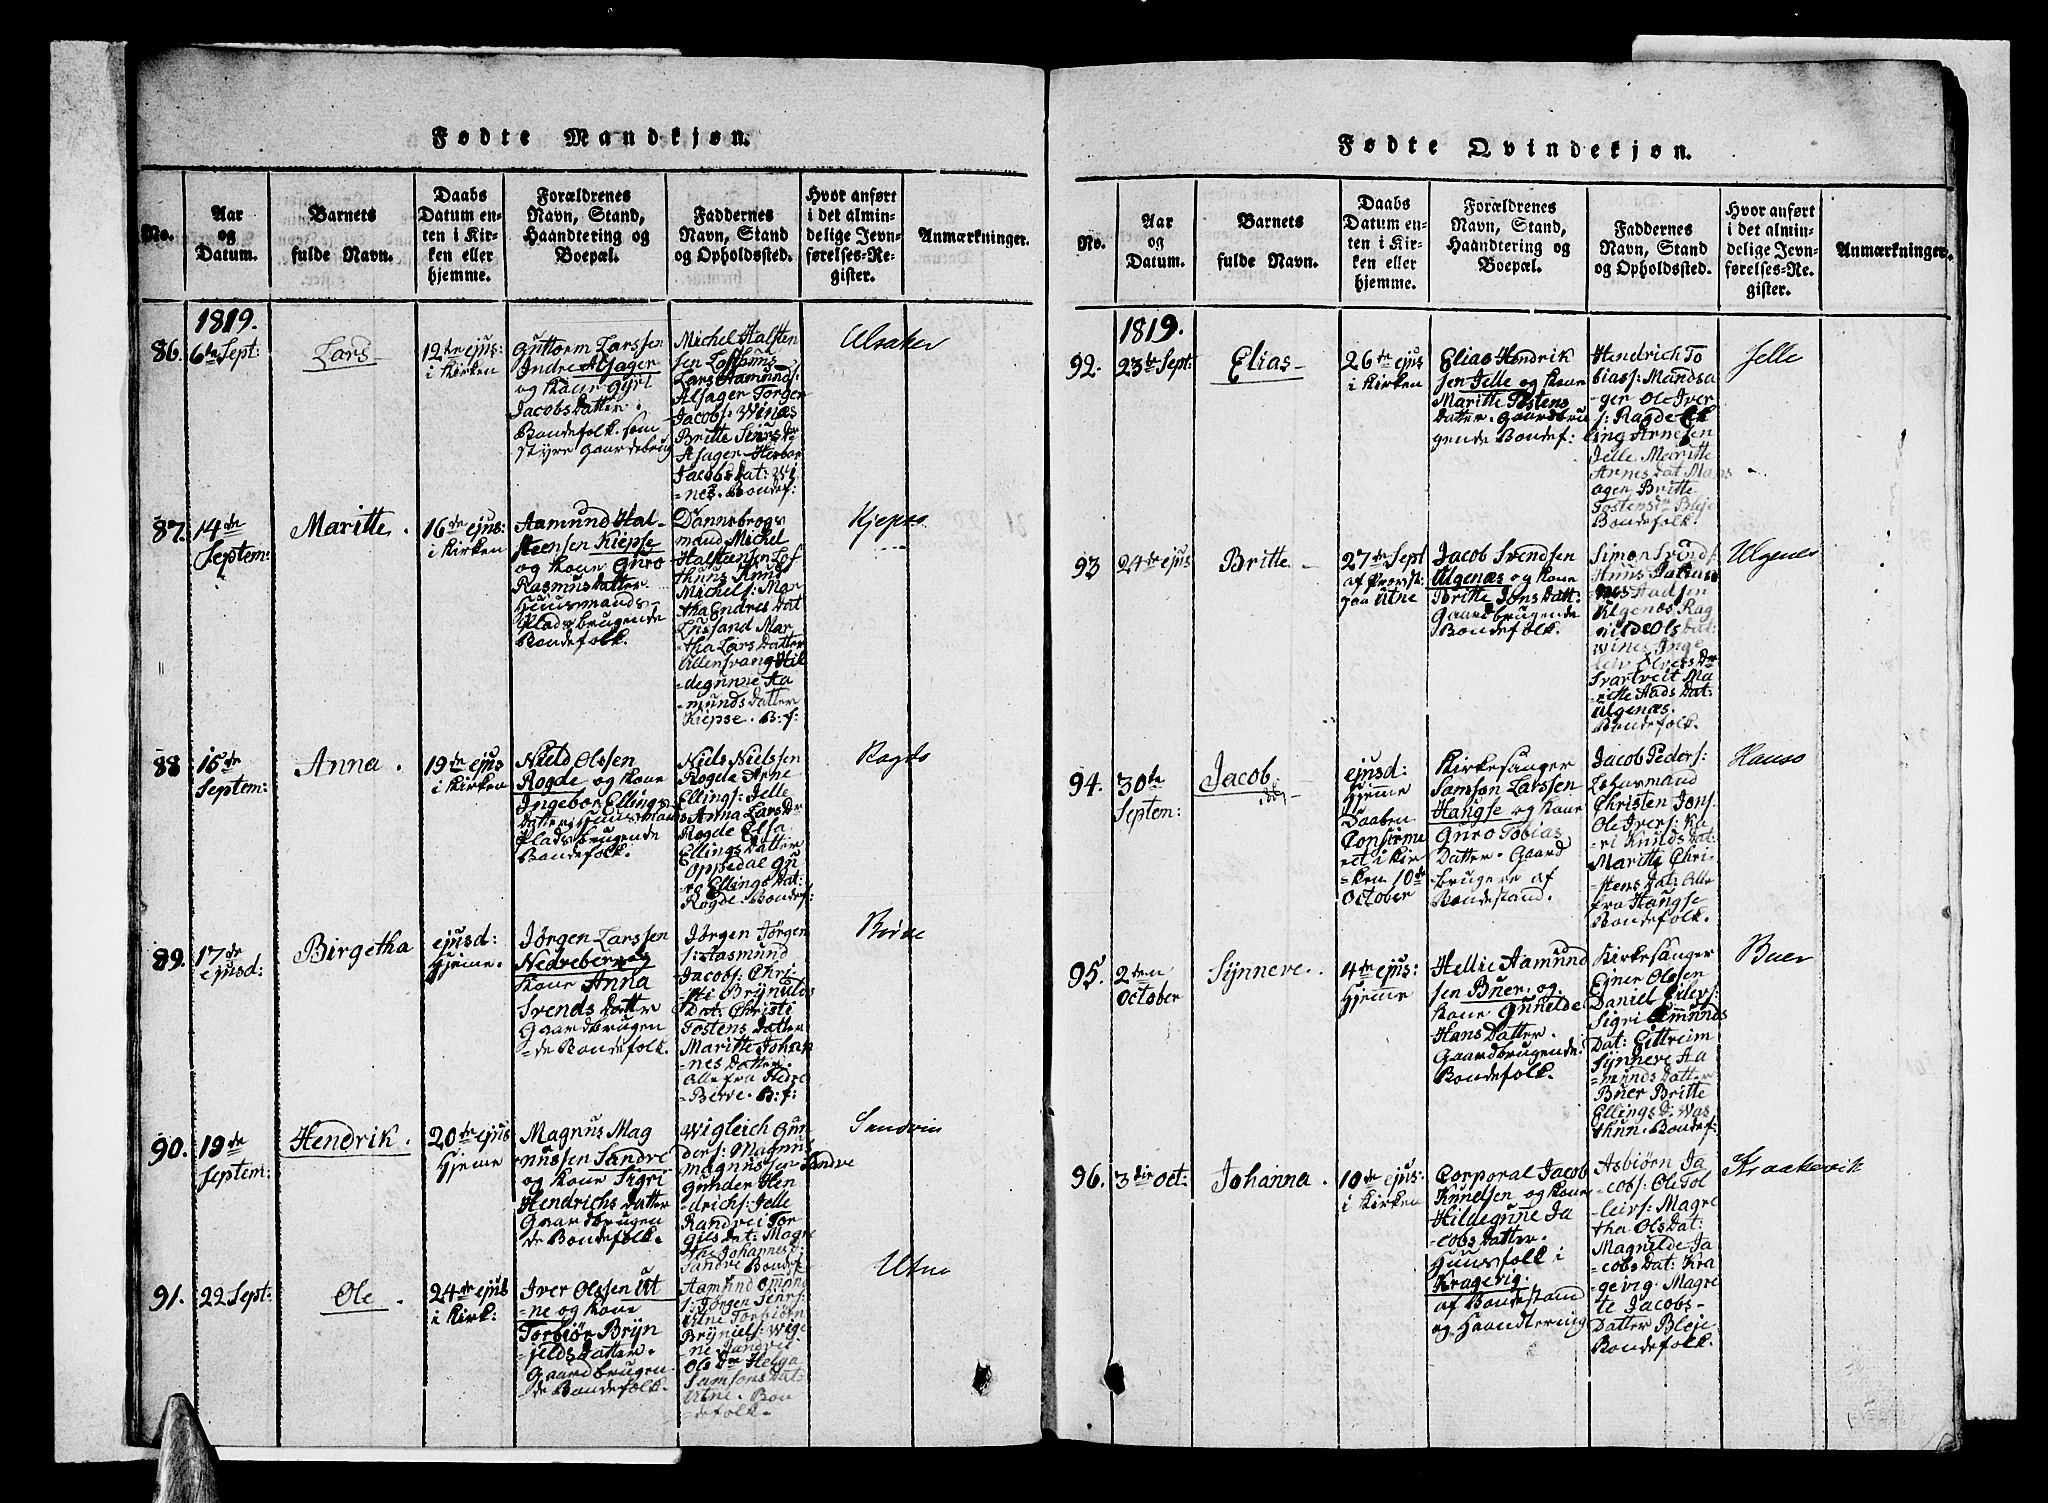 Fødte Mandkjøn.
No.
Aar
og
Datum.
Barnets
fulde Navn.
Daabs
Datum en-
ten i Kir-
ken eller
hjemme.
Forældrenes
Navn, Stand,
Haandtering og
Boepæl.
Faddernes
Navn, Stand
og Opholdssted.
Hvor anført
i det almin-
delige Jevn-
førelses-Re-
gister.
Anmærkninger.
1819.
86.
6te Sept:
Lars
12te ejus:
i Kirken
Guttorm Larssen
Indre Alsager
og Kone Gyri
Jacobs Datter.
Bondefolk. som
styre Gaardsbrug
Michel Halsten
sen Lofthuus
Lars Aamunds:
Alsager Torger
Jacobs: Winæs
Britte Simrs Dr
Alsager Herbor
Jacobs Dat: Wi
=nes. Bondef:
Alsaker
87.
14de
Septem:
Maritte.
16de ejus:
i Kirken
Aamund Hal-
steensen Kiepse
og Kone Guro
Rasmus Datter
Huusmands-
plads brugende
Bondefolk.
Dannebrogs
mand Michel
Halsteensen Lof
thuus Amd
Michels: Mar
tha Endres Dat
Lussand Mar
tha Lars Datter
Ullensvang Hil
=degunne Aa
=munds Datter
Kiepse. B: f:
Kjepso
88
15de
Septem:
Anna.
19de ejus
i Kirken
Nield Olssen
Rogde og Kone
Ingebor Ellings
Datter, Huusman
plads brugende
Bondefolk.
Niels Nielssen
Rogde Arne
Ellings: Jelle
Anna Lars Dr
Rogde Elsa
Ellings Datter
Oppedal Gu
ro Ellings Dat:
Rogde. Bondef:
Ragde
89.
17de
ejusd:
Birgetha
ejusd:
Hjeme.
Jørgen Larssen
Nedreberve og
Kone Anna
Svends Datter
Gaardbrugen
=de Bondefolk.
Jørgen Jørgen
s: Aasmund
Jacobs: Chri
sti Brynilds
Dat. Christi
Tostens Datter
Maritte Johan
nes Datter.
Alle fra Nedre
Berve. B: f:
Børve
90.
19de
Septem:
Hendrik.
20de ejus
Hjeme
Magnus Mag
nussen Sandve
og Kone Sigri
Hendrichs Datter
Gaardbrugen
de Bondefolk.
Wigleich Gun
ders: Magnus
Magnussen Sandve
Gunder Hen
drichs: Jelle
Randvei Tor
gils Dat: Magre
tha Johannes:
Sandve Bondef
Sandvin
91.
22 Sept:
Ole.
24de ejus
i Kirk:
Iver Olssen Ut
=ne og Kone
Torbiør Bryn
=jelds Datter.
Gaardbrugen
de Bondefolk.
Aamund Omund
s: Jørgen Jens:
Utne Torbiørn
Bryniels: Wige
Ols Dr Helga
Samsons Dat:
Utne. Bon
=defolk.
Utne
Fødte Qvindekjøn.
No.
Aar
og
Datum.
Barnets
fulde Navn.
Daabs
Datum en-
ten i Kir-
ken eller
hjemme.
Forældrenes
Navn, Stand,
Haandtering og
Boepæl.
Faddernes
Navn, Stand
og Opholdssted.
Hvor anført
i det almin-
delige Jevn-
førelses-Re-
gister.
Anmærkninger.
1819.
92.
23de Sept:
Elias
26de ejus
i Kirken
Elias Hendrik
sen Jelle og Kone
Maritte Tostens
Datter. Gaardbru
gende Bondef:
Hendrich To
bias: Mandsa
ger Ole Iver
s: Ragde El
ling Arnesen
Jelle Maritte
Arnes Dat Mans
agen Britte
Tostens Dr Bleje
Bondefolk.
Jelle
93
24de ejus
Britte
27de Sept
af Provst:
paa Utne
Jacob Svendsen
Ulgenæs og Kone
Britte Jons Datt:
Gaardbrugende
Bondefolk.
Simon Svends
Ulgenæs Rag
nilde Ols Dat:
Wines Inge
leiv Olvers Dr
Svartveit Ma
ritte Aads Dat:
Ulgenæs.
Bondefolk.
Ulgenes
94.
30te
Septem:
Jacob
ejusd:
Hjeme
Daaben
Confirme
ret i Kir
=ken 10de
October
Kirkesanger
Samson Larssen
Haugse og Kone
Guro Tobias
Datter. Gaard
brugere af
Bondestand.
Jacob Peders:
Lehnsmand
Christen Jons.
Ole Ivers: Ka
=ri Knuds Dat:
Maritte Chri-
=stens Dat: Alle
fra Haugse
Bondefolk.
Hauso
95.
2den
October
Synneve.
4de ejus:
Hjeme
Hellie Aamund
sen Buer og
Kone Gunilde
Hans Datter.
Gaardbrugende.
Bondefolk.
Kirkesanger
Ejner Olssen
Daniel Eilevs:
Sigri Amunds
Dat: Eittreim
Synneve Aa
=munds Datter
Buer Britte
Ellings D. Was
thun. Bondef:
Buer
96.
3die Oct:
Johanna.
10de ejus:
i Kirken
Corporal Jacob
Knudsen og Kone
Hildegunne Ja
cobs Datter.
Huusfolk i
Kragevig.
af Bondestand
og Haandtering
Asbiørn Ja
=cobs: Ole Tol
=leivs: Magre
tha Ols Dat:
Magnilde Ja
=cobs Dat: Kra
gevig Magre
te Jacobs-
Datter Bleje
Bondefolk.
Kraakevik